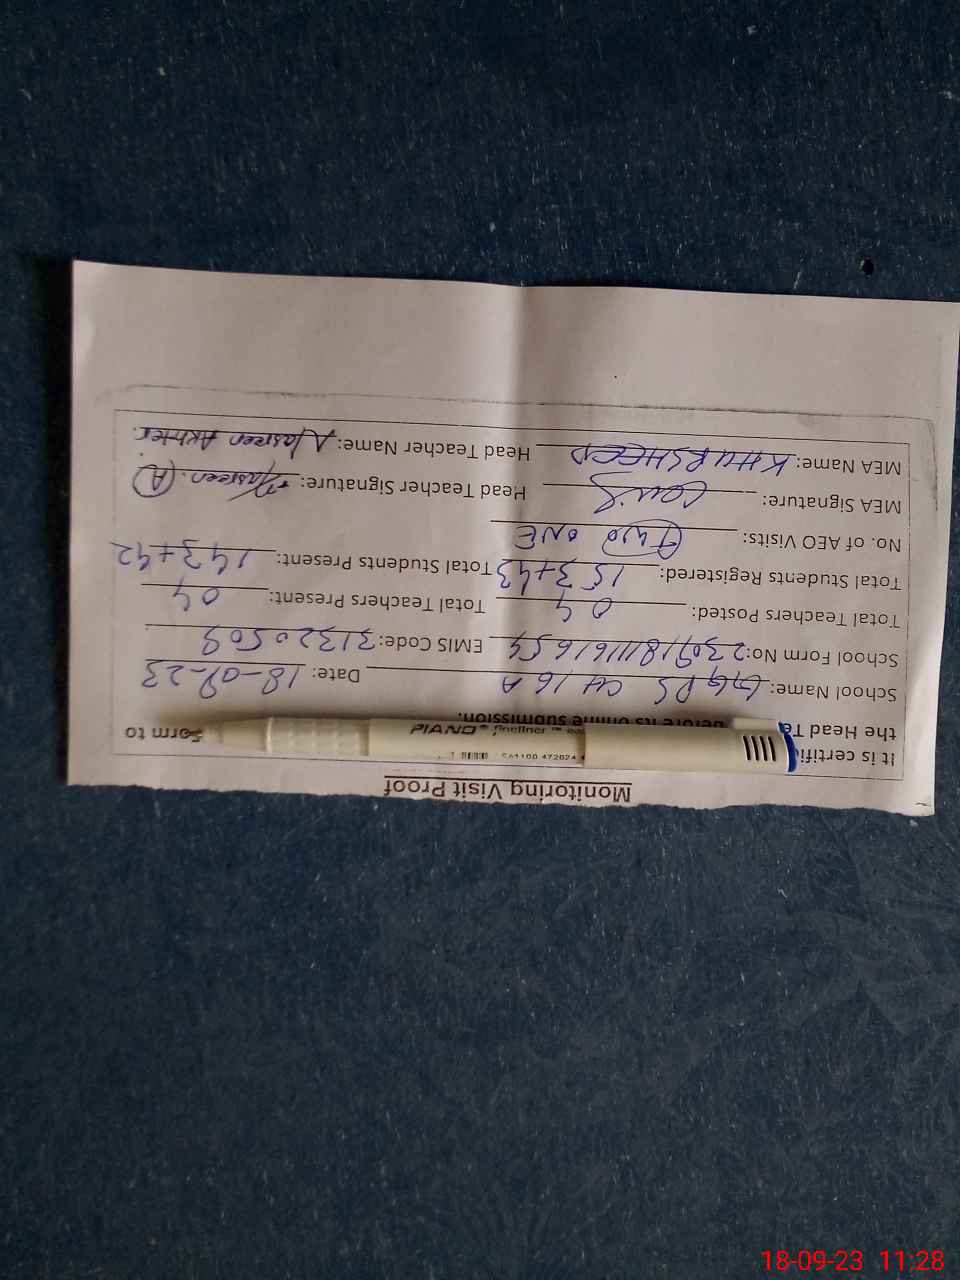 Monitoring Visit Proof
It is certifi form to
the Head Te before its online submission.
School Name: GGPS CH 16 A Date: 18-09-23
School Form No: 23091811161654 EMIS Code: 31320509
Total Teachers Posted: 04 Total Teachers Present: 04
Total Students Registered: 153+43 Total Students Present: 143+42
No. of AEO Visits: Two ONE
MEA Signature: Head Teacher Signature: Nasreen (A)
MEA Name: KHURSHEED Head Teacher Name: Nasreen Akhter.
PIANO fineliner
18-09-23 11:28